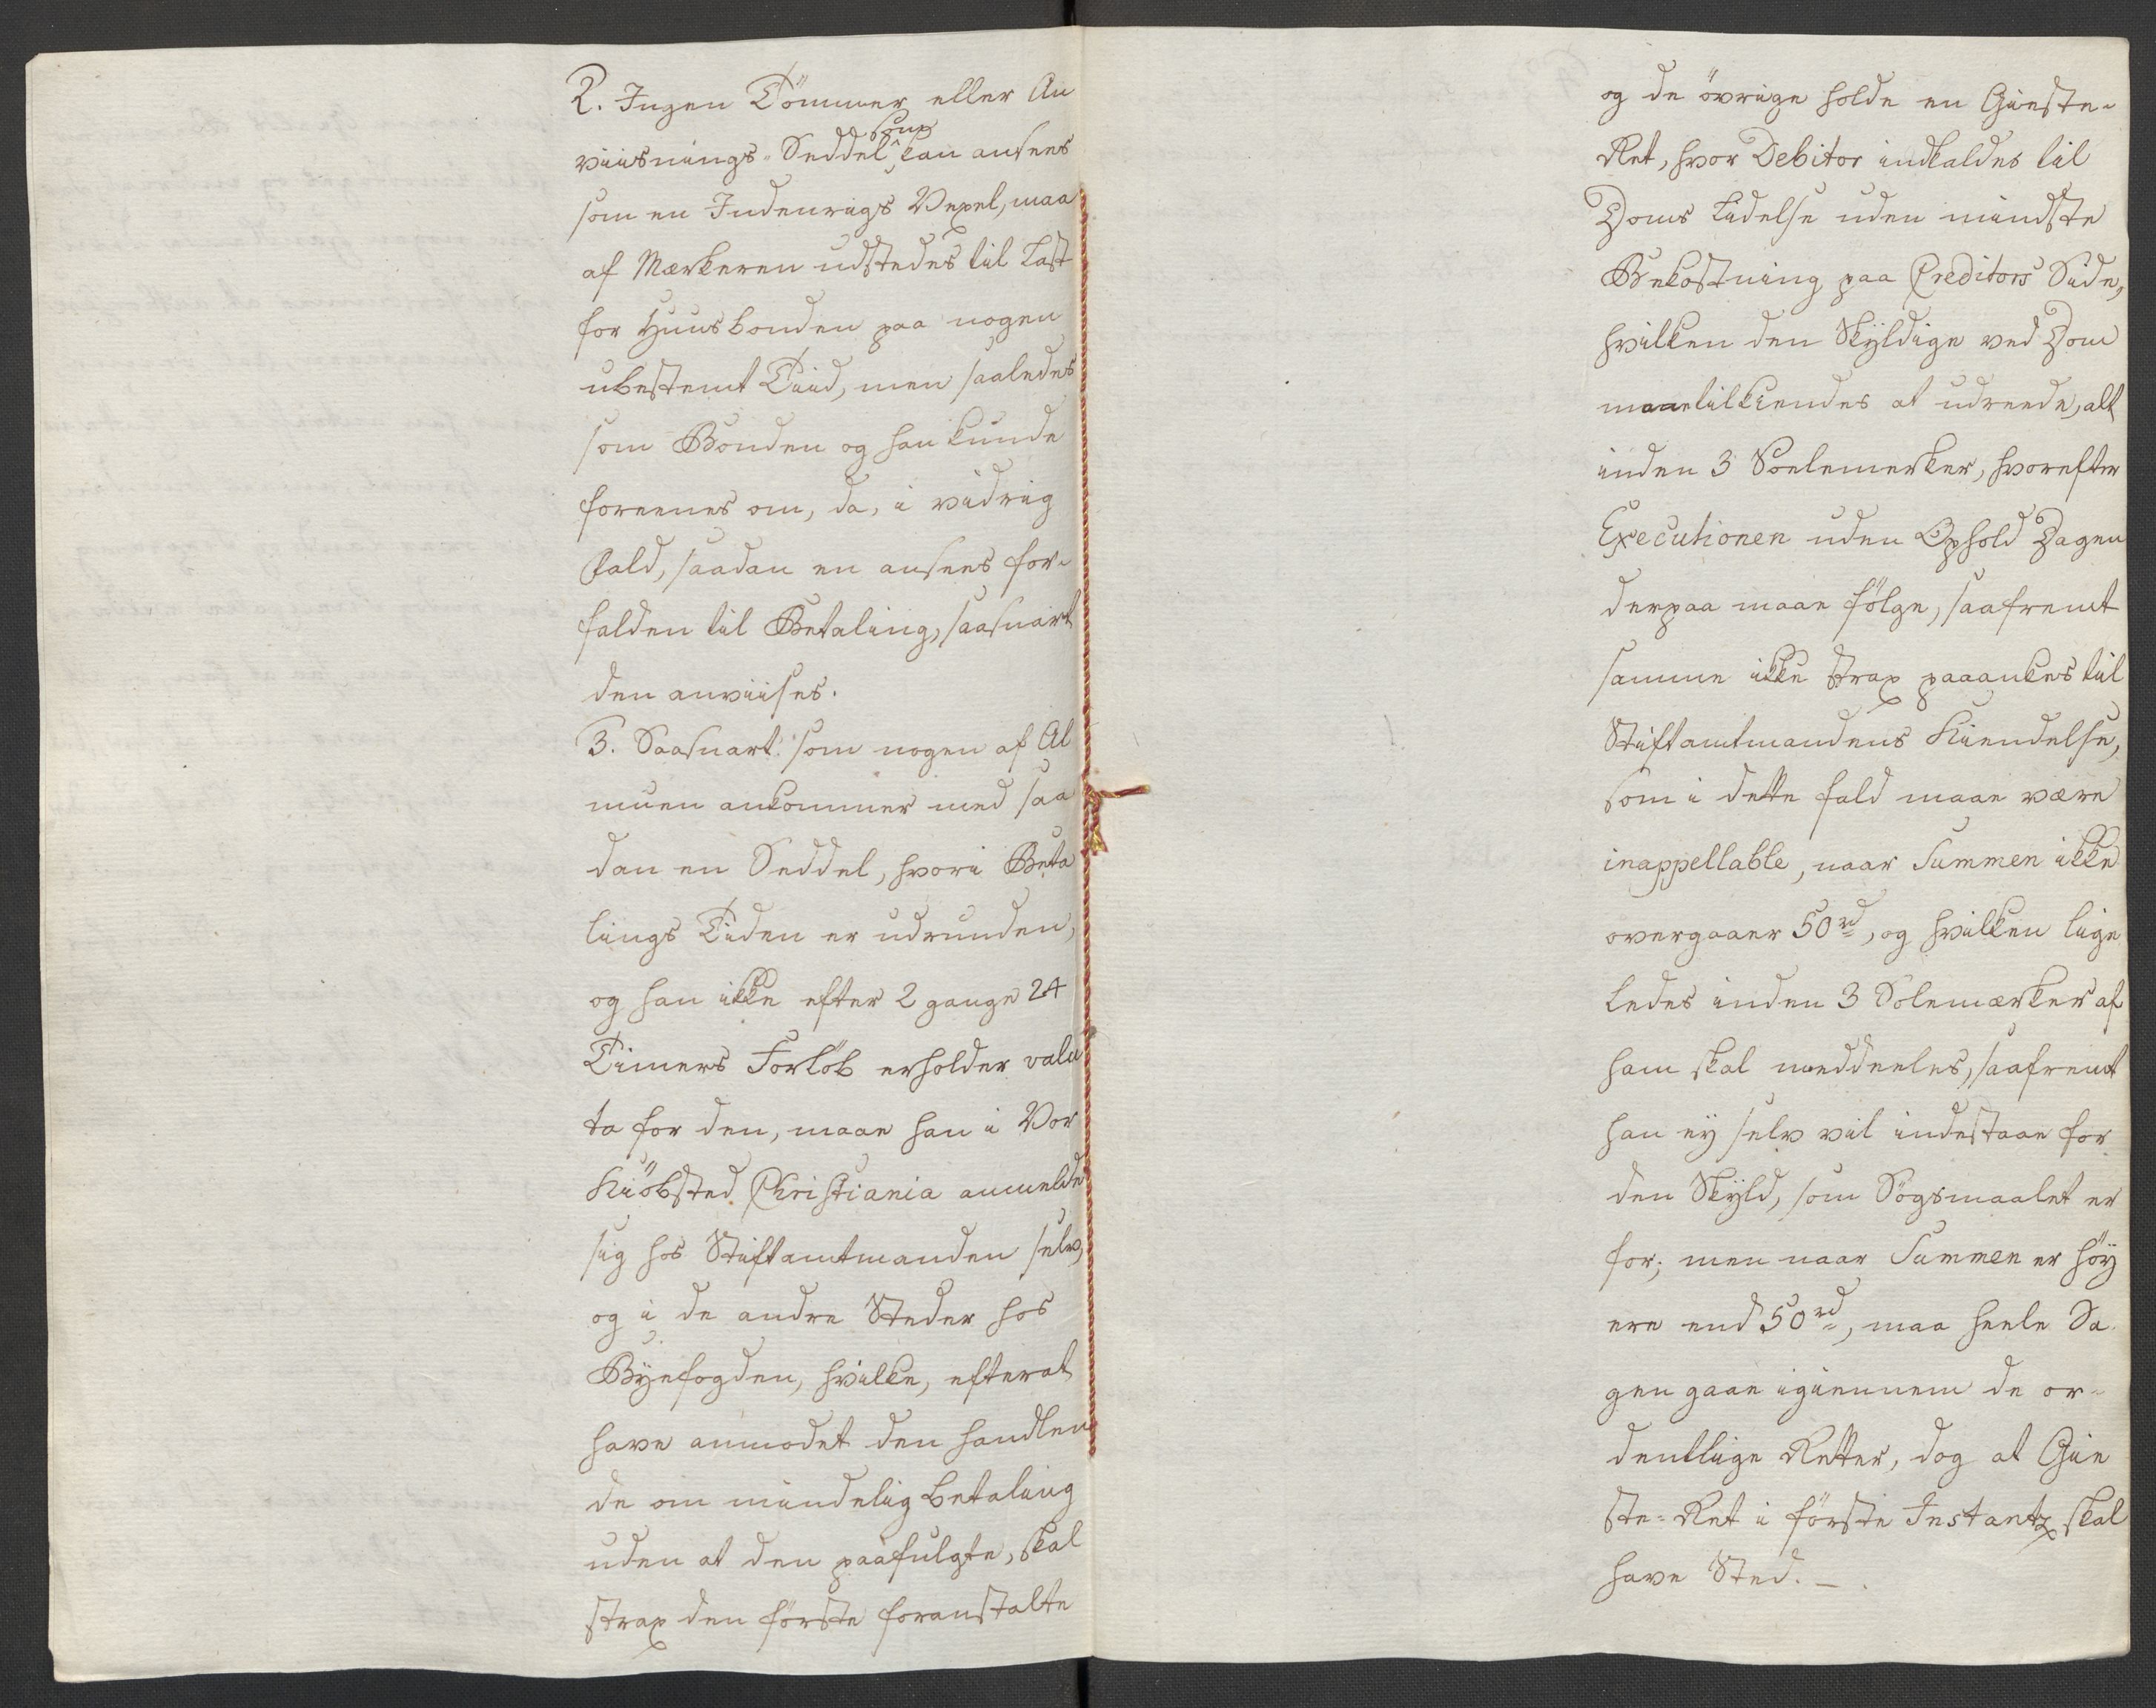 2. Ingen Tömmer eller An
viisnings-Seddel, som kan ansees
som en Indenrigs Vexel, maa
af Mærkeren udstedes til Last
for Huusbonden paa nogen
ubestemt Tiid, men saaledes
som Bonden og han kunde
foreenes om, da, i vidrig
Fald, saadan en ansees for-
falden til Betaling, saasnart
den anviises.
3. Saasnart som nogen af Al
muen ankommer med saa
dan en Seddel, hvori Beta
lings Tiden er udrunden,
og han ikke efter 2 gange 24
Timers Forlöb erholder valu
ta for den, maae han i Vor
Kiöbsted Christiania anmelde
sig hos Stiftamtmanden selv,
og i de andre Steder hos
Byefogden, hvilke, efterat
have anmodet den handlen
de om mindelig betaling
uden at den paafulgte, skal
strax den förste foranstalte
og de övrige holde en Gieste-
Ret, hvor Debitor indkaldes til
Doms Lidelse uden mindste
Bekostning paa Creditors Side,
hvilken den Skyldige ved Dom
maae tilkiendes at udreede, alt
inden 3 Soelemerker, hvorefter
Executionen uden Ophold Dagen
derpaa maae fölge, saafremt
samme ikke strax paaankes til
Stiftamtmandens Kiendelse,
som i dette fald maae være
inappellable, naar Summen ikke
overgaaer 50 rd, og hvilken lige
ledes inden 3 Solemærker af
ham skal meddeeles, saafremt
han ey selv vil indestaae for
den Skyld, som Sögsmaalet er
for; men naar Summen er höy
ere end 50 rd, maa heele Sa
gen gaae igiennem de or-
dentlige Retter, dog at Gie
ste-Ret i förste Instantz skal
have Sted. —